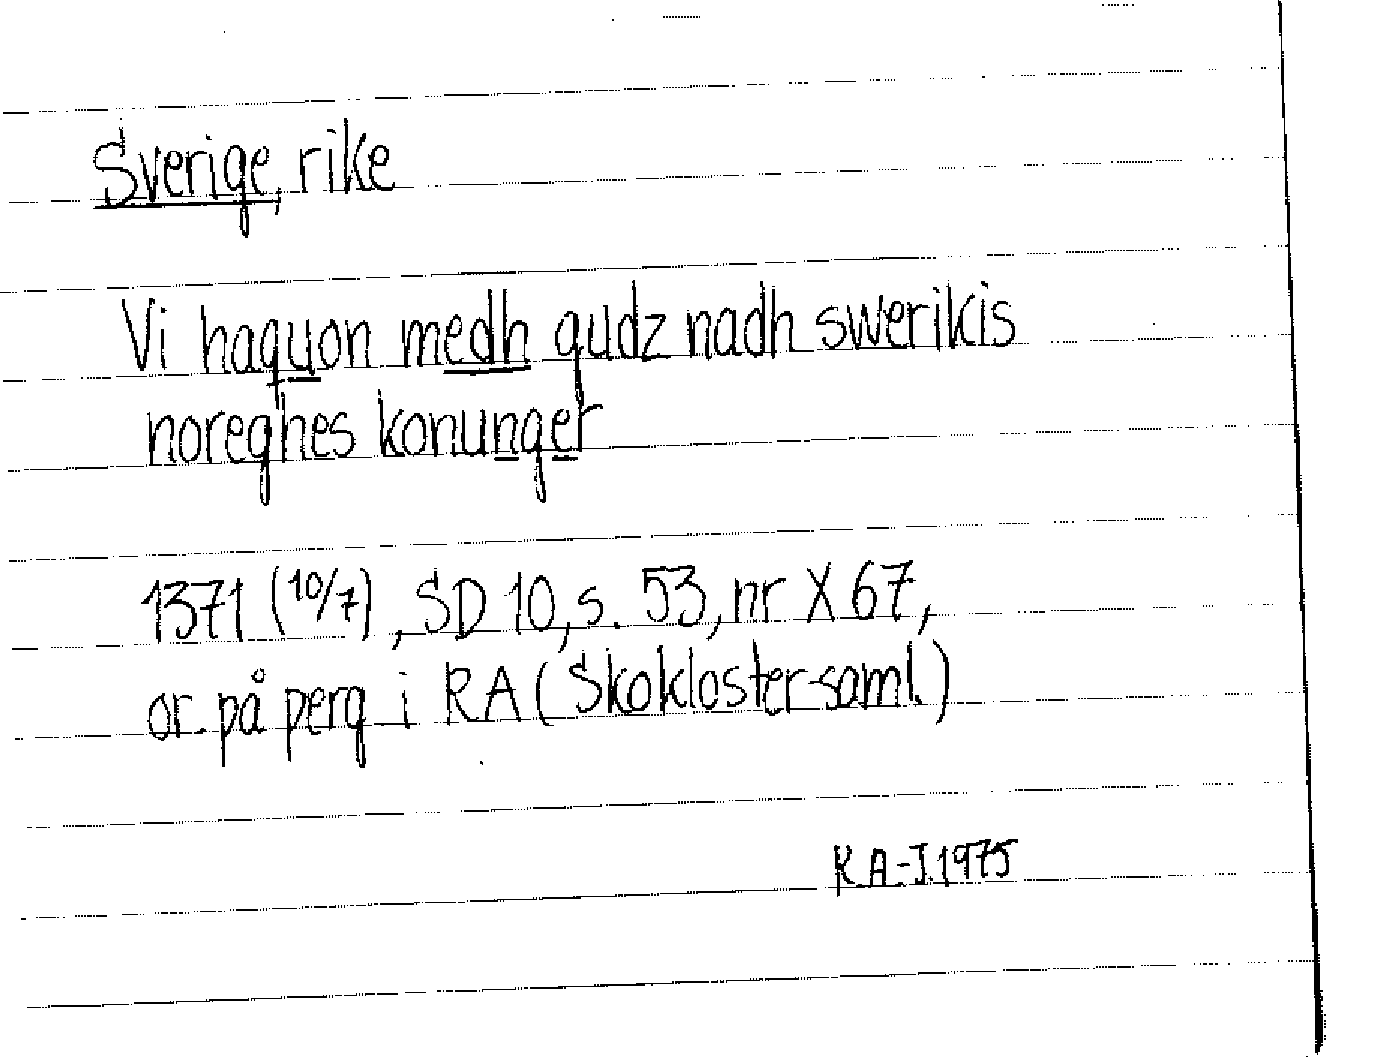 Sverige, rike
Vi haquon medh gudz nadh swerikis
noreghes konunger
1371 (10/7), SD 10, s. 53, nr X 67,
or. på perg i RA (Skoklostersaml.)
K.A.-J. 1975